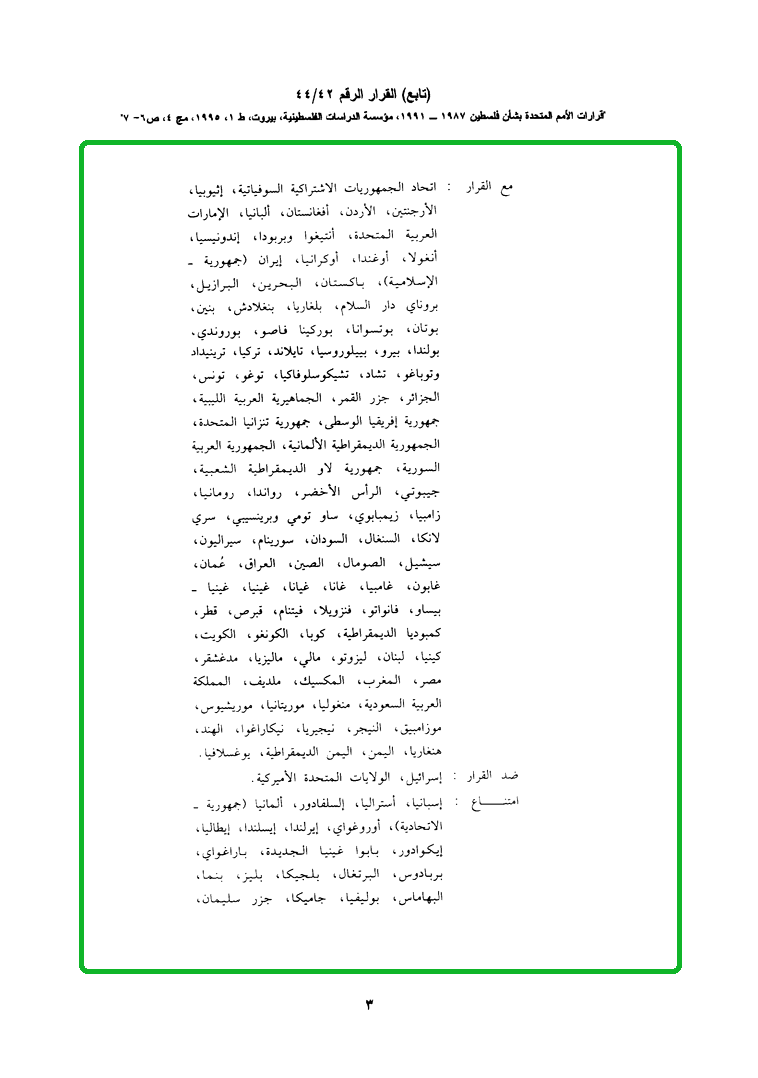 (تابع) القرار الرقم ٤٤/٤٢
"قرارات الأمم المتحدة بشأن فلسطين ١٩٨٧ ــ ١٩٩١، مؤسسة الدراسات الفلسطينية، بيروت، ط ١، ١٩٩٥، مج ٤، ص٦- ٧"
مع القرار : اتحاد الجمهوريات الاشتراكية السوفياتية، إثيوبيا،
الأرجنتين، الأردن، أفغانستان، ألبانيا، الإمارات
العربية المتحدة، أنتيغوا وبربودا، إندونيسيا،
أنغولا، أوغندا، أوكرانيا، إيران (جمهورية ـ
الإسلامية)، باكستان، البحرين، البرازيل،
بروناي دار السلام، بلغاريا، بنغلادش، بنين،
بوتان، بوتسوانا، بوركينا فاصو، بوروندي،
بولندا، بيرو، بييلوروسيا، تايلاند، تركيا، ترينيداد
وتوباغو، تشاد، تشيكوسلوفاكيا، توغو، تونس،
الجزائر، جزر القمر، الجماهيرية العربية الليبية،
جمهورية إفريقيا الوسطى، جمهورية تنزانيا المتحدة،
الجمهورية الديمقراطية الألمانية، الجمهورية العربية
السورية، جمهورية لاو الديمقراطية الشعبية،
جيبوتي، الرأس الأخضر، رواندا، رومانيا،
زامبيا، زيمبابوي، ساو تومي وبرينسيبي، سري
لانكا، السنغال، السودان، سورينام، سيراليون،
سيشيل، الصومال، الصين، العراق، عُمان،
غابون، غامبيا، غانا، غيانا، غينيا، غينيا ـ
بيساو، فانواتو، فنزويلا، فيتنام، قبرص، قطر،
كمبوديا الديمقراطية، كوبا، الكونغو، الكويت،
كينيا، لبنان، ليزوتو، مالي، ماليزيا، مدغشقر،
مصر، المغرب، المكسيك، ملديف، المملكة
العربية السعودية، منغوليا، موريتانيا، موريشيوس،
موزامبيق، النيجر، نيجيريا، نيكاراغوا، الهند،
هنغاريا، اليمن، اليمن الديمقراطية، يوغسلافيا.
ضد القرار : إسرائيل، الولايات المتحدة الأميركية.
امتنـــــاع : إسبانيا، أستراليا، إلسلفادور، ألمانيا (جمهورية ـ
الاتحادية)، أوروغواي، إيرلندا، إيسلندا، إيطاليا،
إيكوادور، بابوا غينيا الجديدة، باراغواي،
بربادوس، البرتغال، بلجيكا، بليز، بنما،
البهاماس، بوليفيا، جاميكا، جزر سليمان،
٣